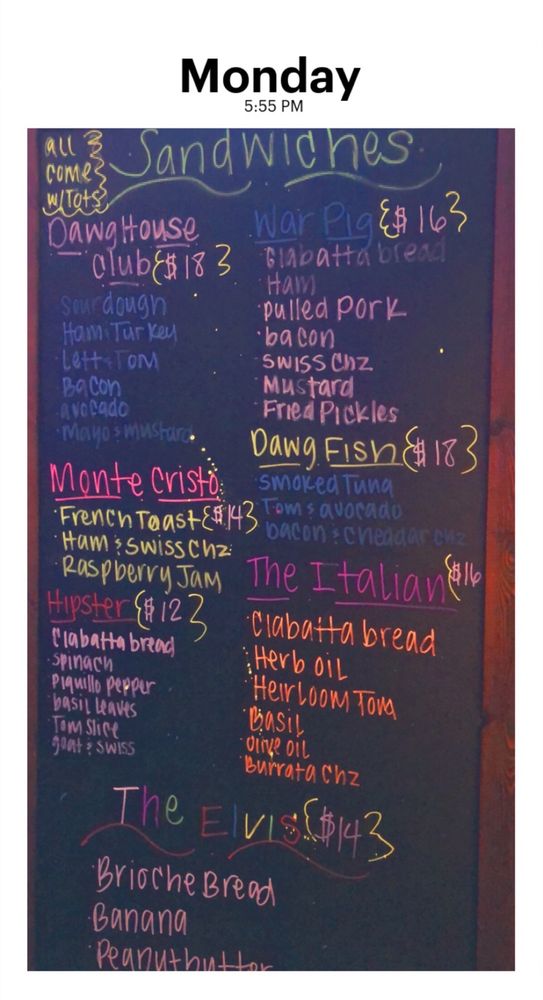 Monday
5:55 PM
all
come
w/Tots
Sandwiches
DawgHouse
Club {$18}
Sourdough
Ham Turkey
Lett Tom
Bacon
avocado
Mayo & mustard
Monte Cristo
French Toast {$14}
Ham & Swiss Chz
Raspberry Jam
Hipster {$12}
Ciabatta bread
Spinach
Piquillo Pepper
basil leaves
Tom Slice
goat & swiss
War Pig {$16}
Ciabatta bread
Ham
pulled Pork
bacon
Swiss Chz
Mustard
Fried Pickles
Dawg Fish {$18}
Smoked Tuna
Tom & avocado
bacon & cheddar chz
The Italian {$16
Ciabatta bread
Herb oil
Heirloom Tom
Basil
olive oil
Burrata Chz
The Elvis {$14}
Brioche Bread
Banana
Peanutbutter